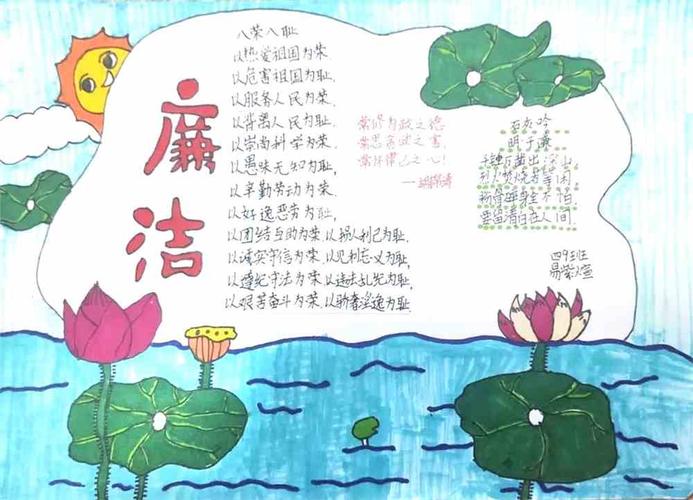 廉洁
八荣八耻
以热爱祖国为荣
以危害祖国为耻,
以服务人民为荣,
以背离人民为耻,
以崇尚科学为荣,
以愚昧无知为耻,
以辛勤劳动为荣,
以好逸恶劳为耻,
以团结互助为荣,以损人利己为耻,
以诚实守信为荣,以见利忘义为耻,
以遵纪守法为荣,以违法乱纪为耻,
以艰苦奋斗为荣,以骄奢淫逸为耻.
常修为政之德
常思贪欲之害,
常怀律己之心!
——胡锦涛
石灰吟
明于谦
千锤万凿出深山,
烈火焚烧若等闲,
粉骨碎身全不怕,
要留清白在人间.
四9班
易紫煊